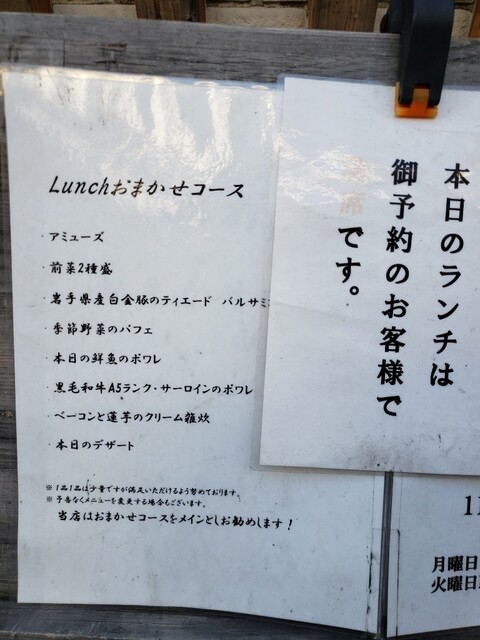 Lunchおまかせコース
・アミューズ
・前菜2種盛
・岩手県産白金豚のティエード バルサミ
・季節野菜のパフェ
・本日の鮮魚のポワレ
・黒毛和牛A5ランク・サーロインのポワレ
・ベーコンと蓮芋のクリーム雑炊
・本日のデザート
※1品1品は少量ですが満足いただけるよう努めております。
※予告なくメニューを変更する場合もございます。
当店はおまかせコースをメインとしお勧めします！
本日のランチは
御予約のお客様で
満席です。
11
月曜日
火曜日